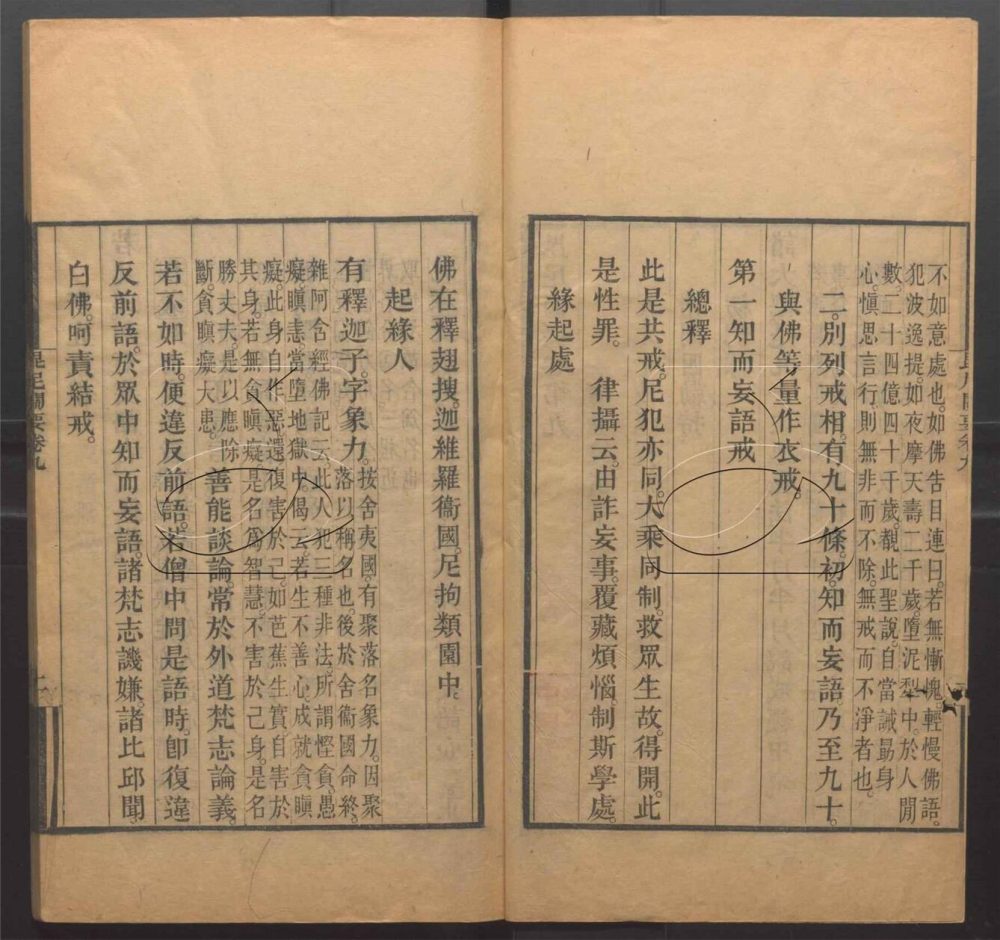 不如意處也。如佛告目連曰。若無慚愧。輕慢佛語。
犯波逸提。如夜摩天壽二千歲。墮泥犁中。於人間
數二十四億四十千歲。覩此聖說。自當誡勗身
心。慎思言行。則無非而不除。無戒而不淨者也。
二。別列戒相。有九十條。初。知而妄語。乃至九十。
與佛等量作衣戒。
第一知而妄語戒
總釋
此是共戒。尼犯亦同。大乘同制。救眾生故。得開。此
是性罪。 律攝云。由詐妄事。覆藏煩惱。制斯學處。
緣起處
佛在釋翅搜。迦維羅衞國。尼拘類園中。
起緣人
有釋迦子。字象力。
按舍夷國。有聚落名象力。因聚
落以稱名也。後於舍衞國命終。
雜阿含經。佛記云。此人犯三種非法。所謂慳貪。愚
癡。瞋恚。當墮地獄中。偈云。若生不善心。成就貪瞋
癡。此身自作惡。還復害於己。如芭蕉生實。自害於
其身。若無貪瞋癡。是名為智慧。不害於己身。是名
勝丈夫。是以應除
斷。貪瞋癡大患。
善能談論。常於外道梵志論義。
若不如時。便違反前語。若僧中問是語時。即復違
反前語。於眾中知而妄語。諸梵志譏嫌。諸比邱聞。
白佛。呵責結戒。
毘尼關要卷九